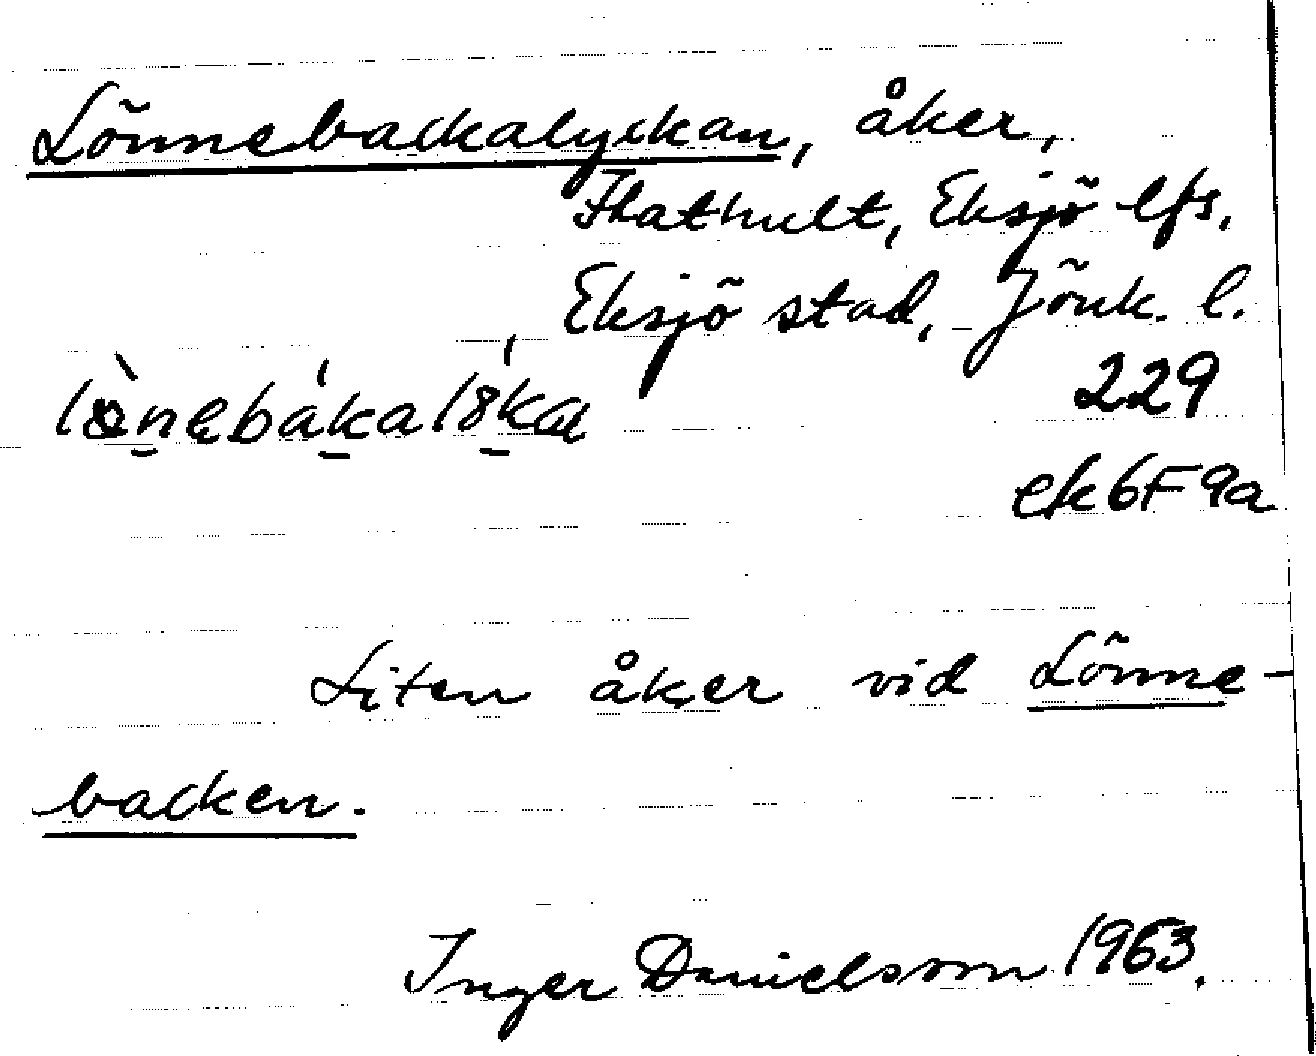 Lönnebackalyckan, åker,
Flathult, Eksjö lfs.
Eksjö stad, Jönk. l.
229
ek6F9a
Liten åker vid Lönne-
backen.
Inger Danielsson 1963.